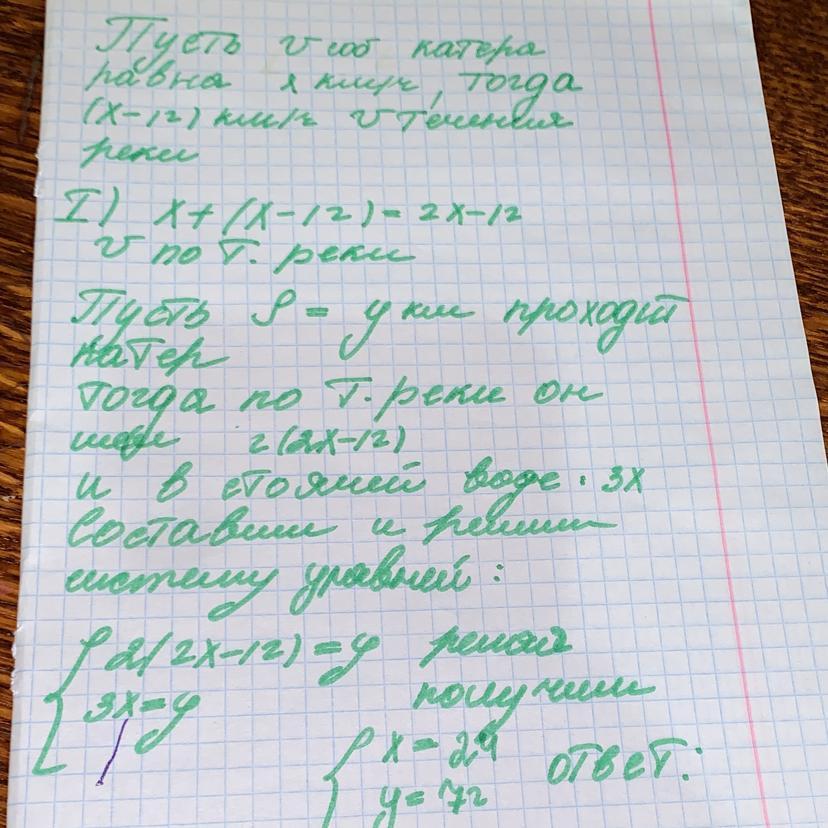 Пусть v соб катера
равна x км/ч, тогда
(x-12) км/ч v течения
реки
I) x+(x-12)=2x-12
v по т. реки
Пусть S = y км проходит
катер
тогда по т. реки он
2(2x-12)
и в стоячей воде. 3x
Составим и решим
систему уравней:
2(2x-12)=y решая
3x=y получим
x=24 ответ:
y=72